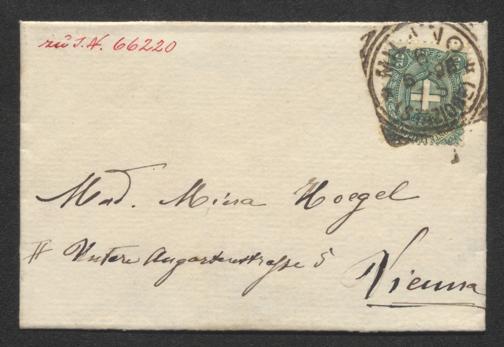 zu I.N. 66220
MILANO
(STAZIONE)
Mad. Mina Hoegel
II Untere Augartenstraße 5
Vienna